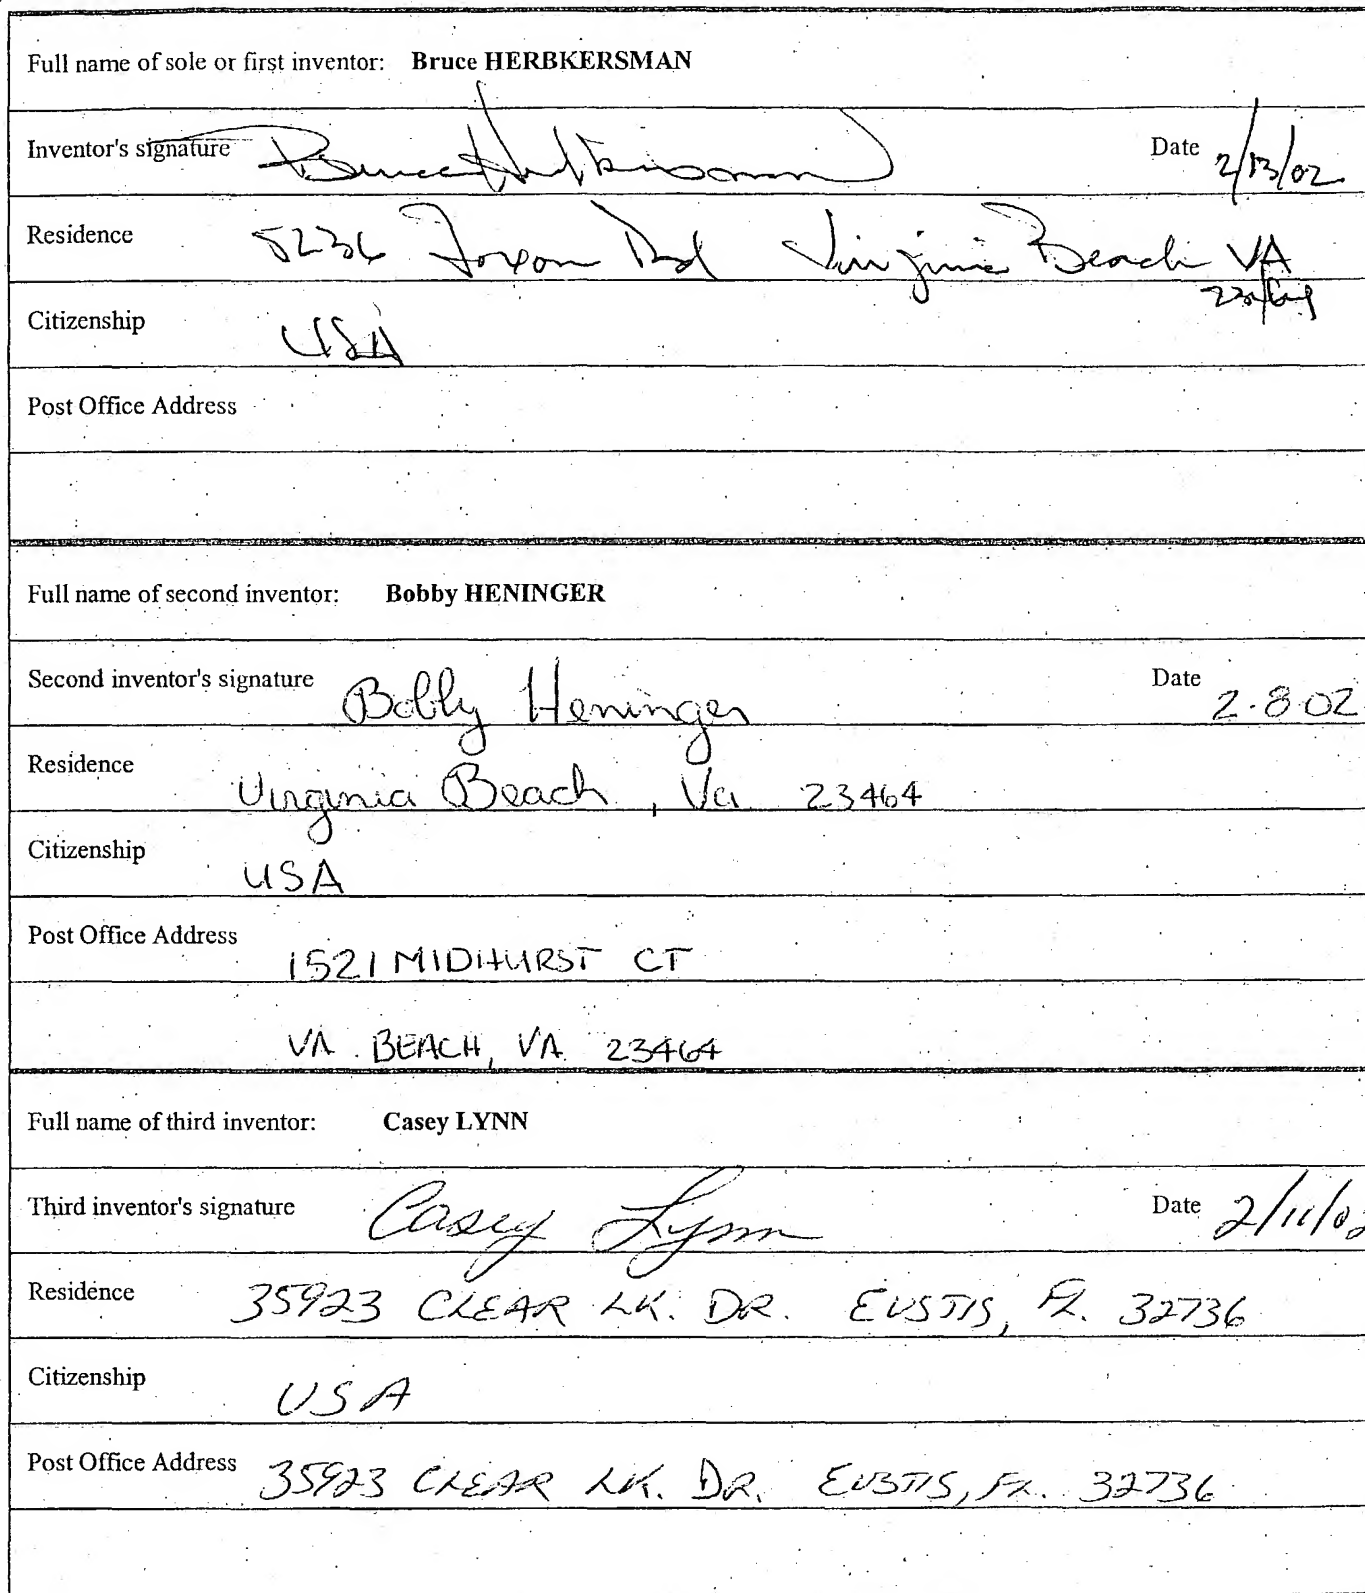 Full name of sole or first inventor: Bruce HERBKERSMAN
Inventor's signature Bruce Herbkersman Date 2/13/02
Residence 5236 Foxon Rd Virginia Beach VA
Citizenship USA
Post Office Address
Full name of second inventor: Bobby HENINGER
Second inventor's signature Bobby Heninger Date 2·8·02
Residence Virginia Beach, Va 23464
Citizenship USA
Post Office Address 1521 MIDHURST CT
VA BEACH, VA 23464
Full name of third inventor: Casey LYNN
Third inventor's signature Casey Lynn Date 2/11/02
Residence 35923 CLEAR LK. DR. EUSTIS, FL. 32736
Citizenship USA
Post Office Address 35923 CLEAR LK. DR. EUSTIS, FL. 32736